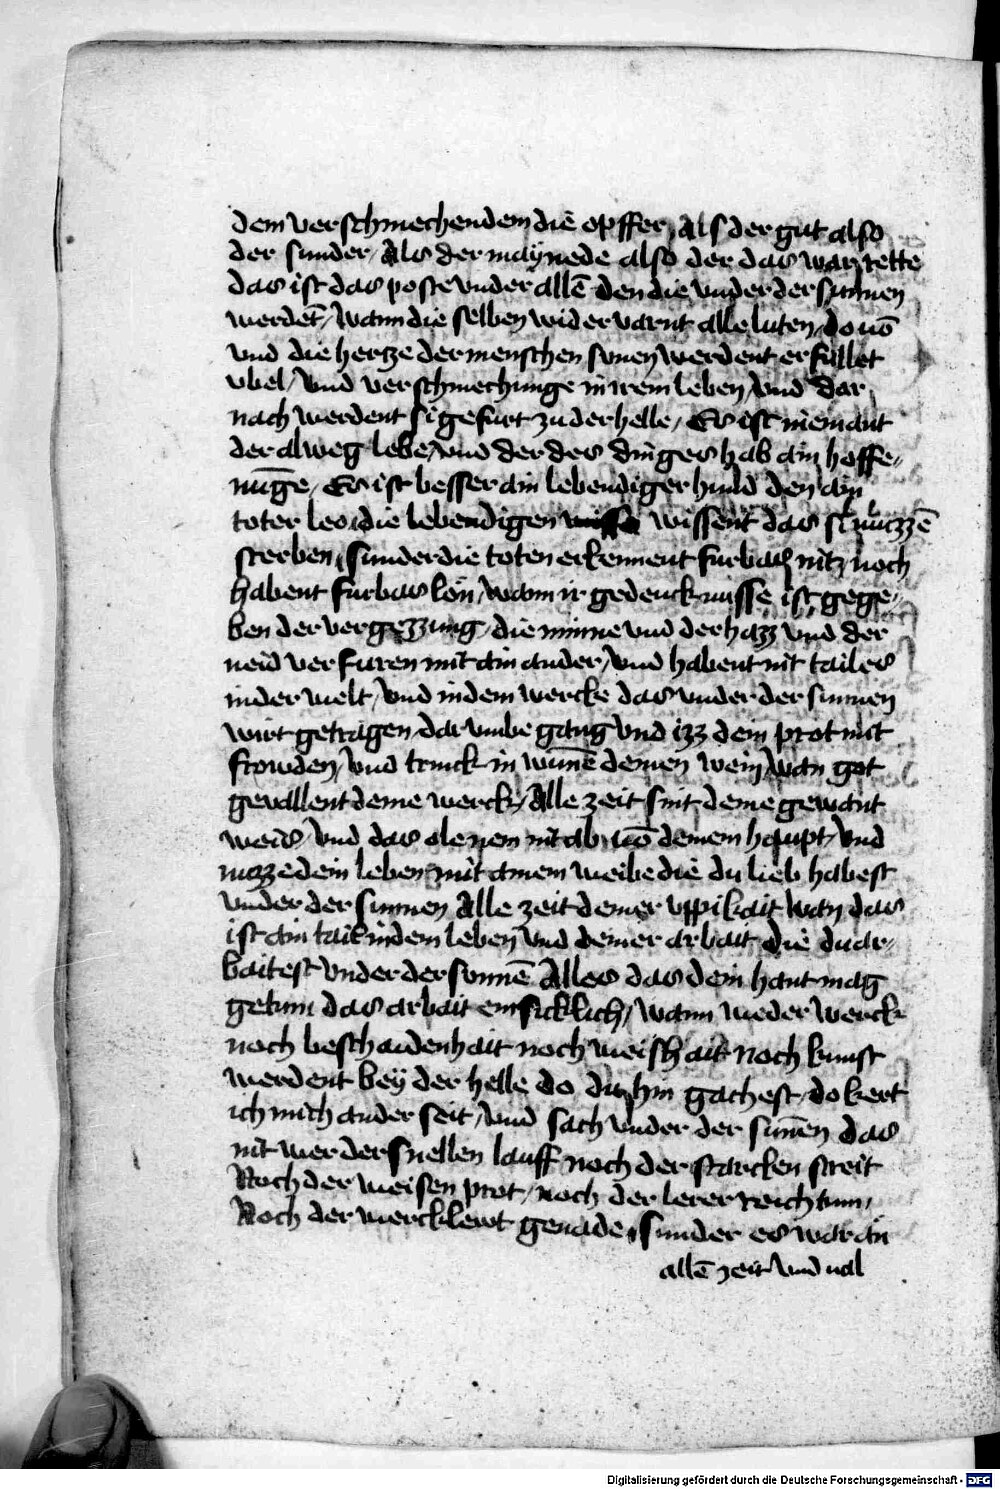 dem verschmechendem die opffer, Als der gut also
der sunder, Als der maynede also der das war rette
das ist das poste vnder allē den die vnder der sunnen
werdēt, Wann die selben wider varnt alle luten, do uō
vnd die hertze der menschen sunen werdent erfullet
vbel, Vnd verschmechunge in irem leben, Vnd dar
nach werdent si gefurt zu der helle, Es ist niemant
der alweg lebe, vnd der des dinges hab ain hoffe„
nūge, Es ist besser ain lebendiger hund den ain
toter leo, die lebendigen wissent das si muzzē
sterben, sunder die toten erkennent furbas nitz noch
habent furbas lon, wann ir gedencknusse ist gege„
ben der vergezzung, die minne vnd der hazz vnd der
neid verfuren mit ain ander, Vnd habent nit tailes
in der welt, Vnd in dem wercke das vnder der sunnen
wirt getragen, dar vmbe gang Vnd izz dein prot mit
frowden, Vnd trinck in wunne deinen wein, wan got
gevallent deine werck, Alle zeit sint deine gewant
weis, Vnd das ole nem nit ab uō deinem haupt, Vnd
nuzze dein leben mit ainem weibe die du lieb habest
vnder der sunnen Alle zeit deiner vppikait Wan das
ist ain tail in dem leben Vnd deiner arbait die du ar„
baitest Vnder der sonnē Alles das dein hant mag
getuni das arbait emsicklich, Wann weder Werck
noch beschaidenhait noch weishait noch kunst
werdent bey der helle do du hin gachest, do kert
ich mich ander seit, Vnd sach Vnder der sunēn das
nit wer der snellen lauff noch der starcken streit
Noch der weisen prot, noch der lerer reichtum,
Noch der wercklewt genade, Sunder es war an
allē zeit Vnd ual
Digitalisierung gefördert durch die Deutsche Forschungsgemeinschaft - DFG